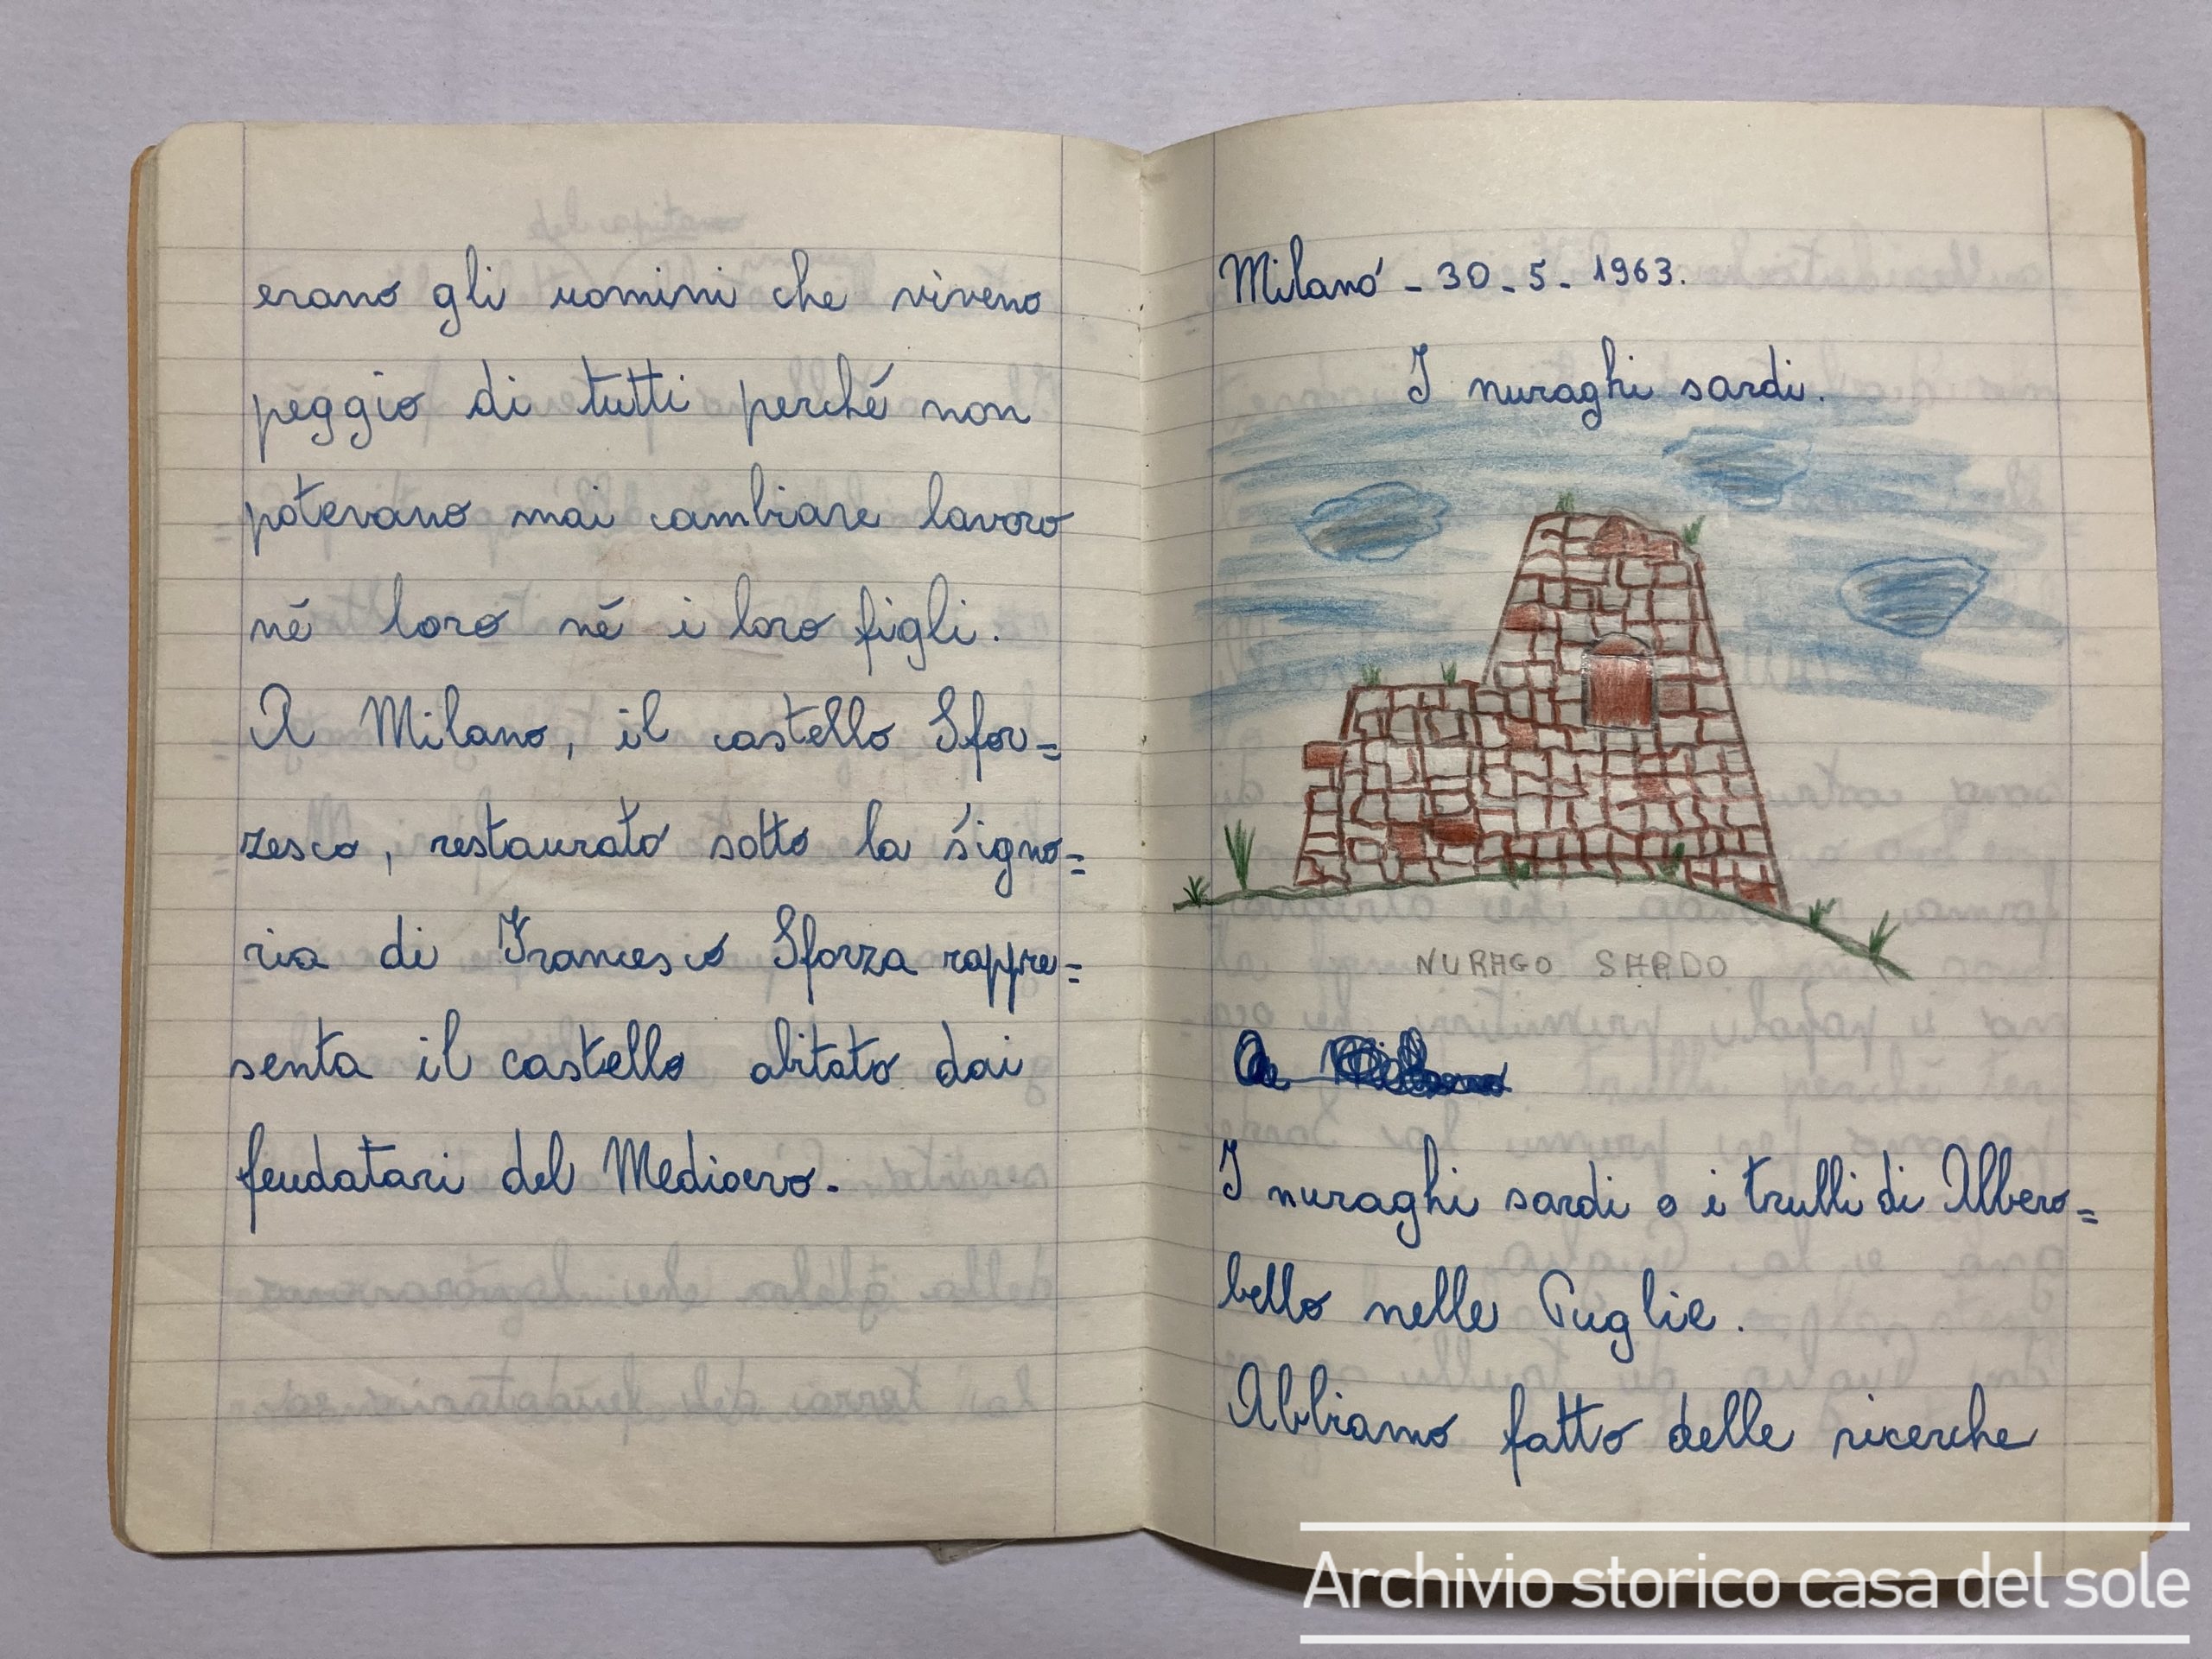 erano gli uomini che viveno
peggio di tutti perché non
potevano mai cambiare lavoro
né loro né i loro figli.
A Milano, il castello Sfor=
zesco, restaurato sotto la signo=
ria di Francesco Sforza rappre=
senta il castello abitato dai
feudatari del Medioevo.
Milano - 30 - 5 - 1963.
I nuraghi sardi.
NURAGO SARDO
I nuraghi sardi o i trulli di Albero=
bello nelle Puglie.
Abbiamo fatto delle ricerche
Archivio storico casa del sole